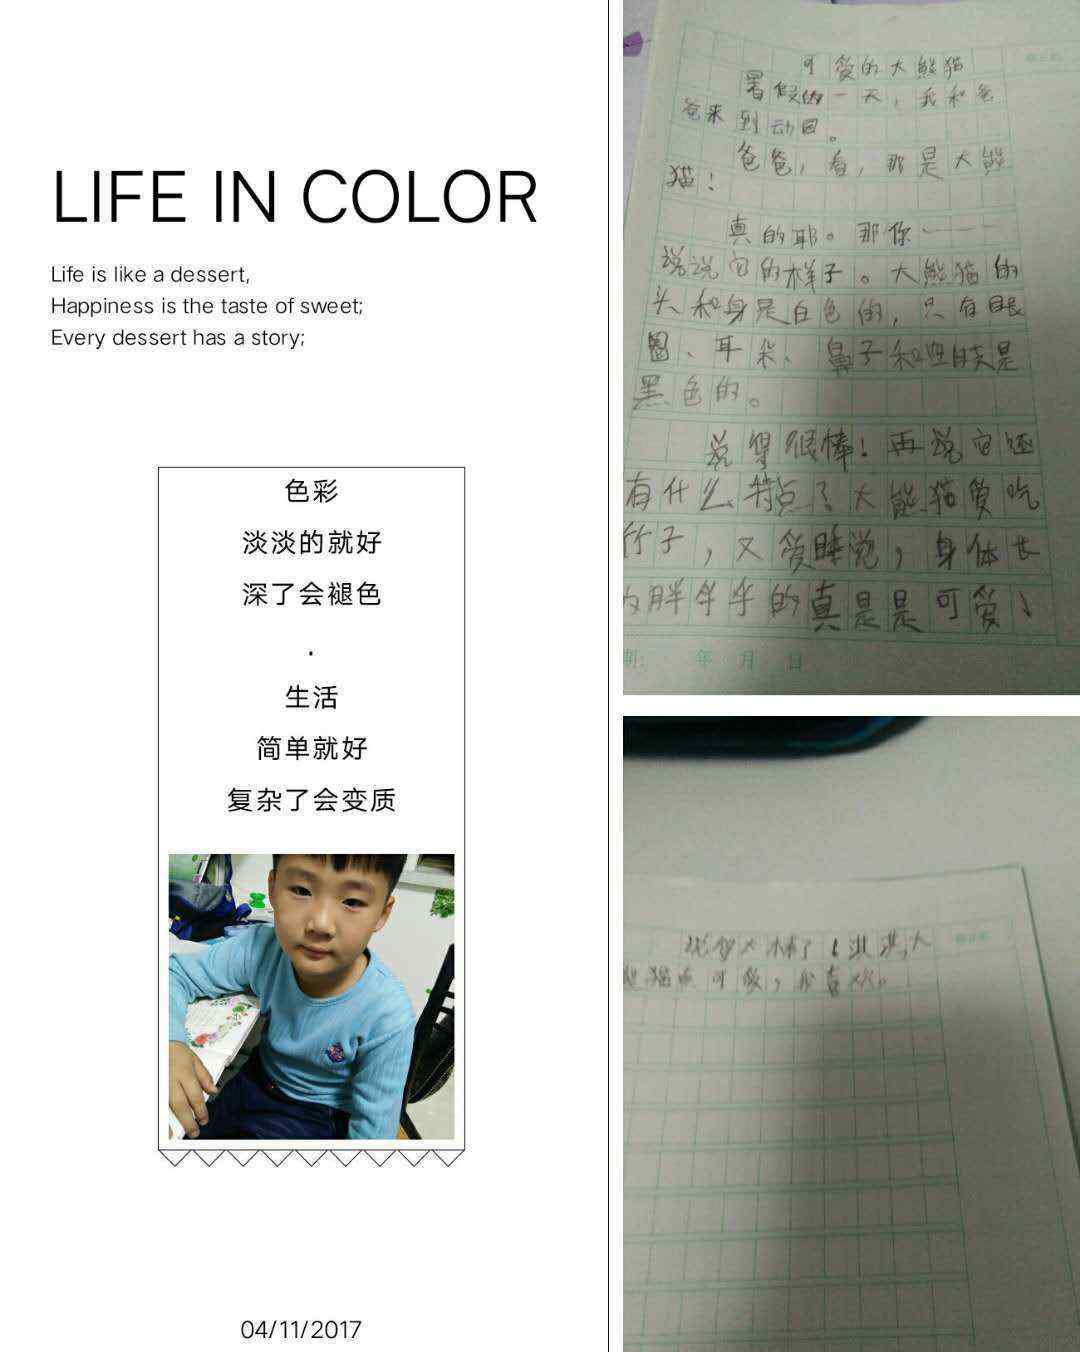 LIFE IN COLOR
Life is like a dessert,
Happiness is the taste of sweet;
Every dessert has a story;
色彩
淡淡的就好
深了会褪色
·
生活
简单就好
复杂了会变质
04/11/2017
可爱的大熊猫
暑假的一天，我和爸
爸来到动园。
爸爸，看，那是大熊
猫！
真的耶。那你一一一
说说它的样子。大熊猫的
头和身是白色的，只有眼
圈、耳朵、鼻子和四肢是
黑色的。
说得很棒！再说它还
有什么特点？大熊猫爱吃
竹子，又爱睡觉，身体长
胖乎乎的真是是可爱！
期： 年 月 日
淇淇，大
猫 可爱，我喜欢。